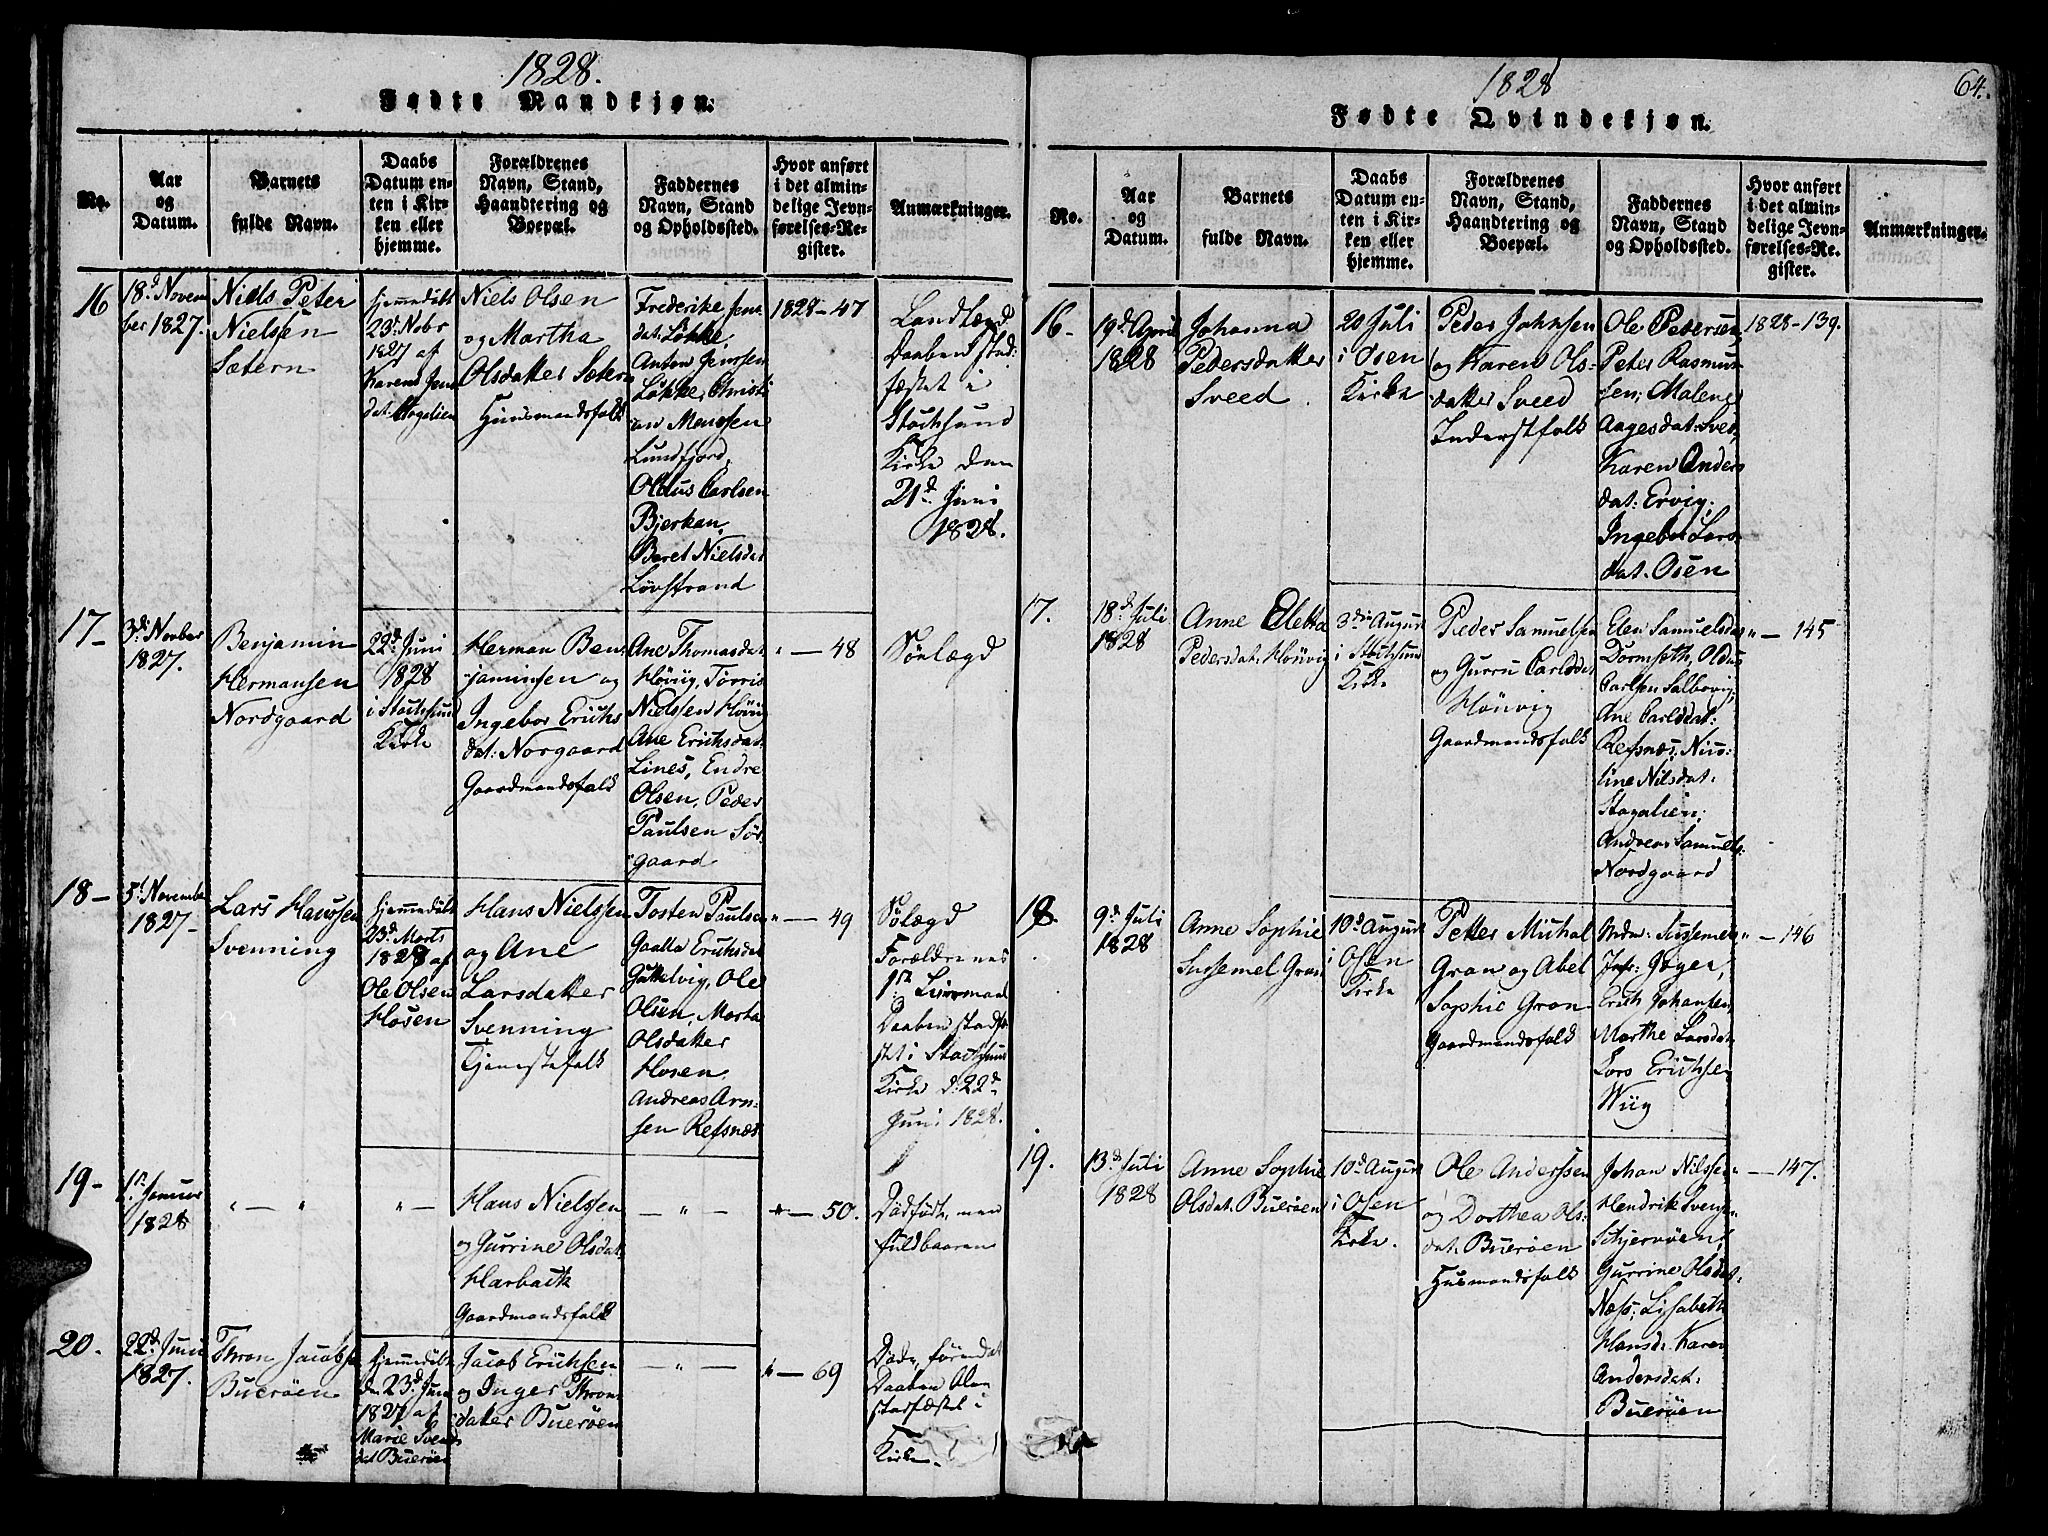 1828.
Fødte Mandkjøn.
No.
Aar
og
Datum.
Barnets
fulde Navn.
Daabs
Datum en-
ten i Kir-
ken eller
hjemme.
Forældrenes
Navn, Stand,
Haandtering og
Boepæl.
Faddernes
Navn, Stand
og Opholdssted.
Hvor anført
i det almin-
delige Jevn-
førelses-Re-
gister.
Anmærkninger.
16
18d Novem
ber 1827.
Niels Peter
Nielsen
Sætern
hjemmedøbt
23d Nobr
1827 af
Karen Jens
dat:
Niels Olsen
og Martha
Olsdatter Sætern
Huusmandsfolk
Frederike Jens
dat: Løkke,
Anton Jenssen
Løkke, Christi
an Monssen
Lundfjord,
Oldus Carlsen
Bjerkan,
Beret Nielsdat
Løvstrand
1828-47
Landlægd
Daaben stad-
fæstet i
Stochsund
Kirke den
21d Juni
1828.
17-
3di Novber
1827.
Benjamin
Hermansen
Nordgaard
22d Juni
1828
i Stochsund
Kirke
Herman Ben
jaminsen og
Ingebor Erichs
dat: Norgaard
Gaardmandsfolk
Ane Thomasdat
Høviig, Torris
Nielssen Høviig
Ane Erichsdat
Lines, Endre
Olsen, Peder
Paulsen Sør
gaard
" - 48
Sølægd
18-
5t Novembe
1827-
Lars Hanssen
Svenning
hjemmedøbt
23d Marts
1828 af
Ole Olsen
Hosen
Hans Nielssen
og Ane
Larsdatter
Svenning
Tjenestefolk
Tosten Paulsen
Gaalla Erichsdat
Guttelvig, Ole
Olsen, Morta
Olsdatter
Hosen
Andreas Arn-
sen Refsnæs
" - 49
Sølægd
Forældrenes
1ste Leiermaal
Daaben stadfæ
stet i Stochsund
Kirke d: 22d
Juni 1828.
19-
1ste Januar
1828
" - "
" -
Hans Nielssen
og Gurrine Olsdat
Harbach
Gaardmandsfolk
- " -
" - 50.
Dødfødt, men
fuldbaaren
20.
22d Juni
1827.
Thron Jacobse
Buerøen
hjemmedøbt
den 23d Juni
1827 af
Marie Svends
dat Buerøen
Jacob Erichsen
og Inger Thron
datter Buerøen
- " -
" - 69
Døde, førend
Daaben blev
stadfæstet i
Kirken.
1828
64.
Fødte Qvindekjøn.
No.
Aar
og
Datum.
Barnets
fulde Navn.
Daabs
Datum en-
ten i Kir-
ken eller
hjemme.
Forældrenes
Navn, Stand,
Haandtering og
Boepæl.
Faddernes
Navn, Stand
og Opholdssted.
Hvor anført
i det almin-
delige Jevn-
førelses-Re-
gister.
Anmærkninger.
16-
19d April
1828
Johanna
Pedersdatter
Sveed
20 Juli
i Osen
Kirke
Peder Johnsen
og Karen Ols-
datter Sveed
Inderstfolk
Ole Pedersen,
Peter Rasmus
sen; Malene
Aagesdat: Sved,
Karen Anders
dat: Ervig;
Ingebor Lars
dat. Osen
1828-139.
17.
18d Juli
1828
Anne Elebra
Pedersdat: Høuvig
3die August
i Stochsund
Kirke
Peder Samuelsen
og Gurru Carlsdat
Høuvig
Gaardmandsfolk
Elen Samuelsdat
Dormseth, Oldus
Carlsen Salbovig;
Ane Carlsdat:
Refsnæs, Nico-
line Nilsdat.
Andreas Samuels:
Nordgaard
" - 145
18
9d Juli
1828
Anne Sophie
Sussemel Gran
10d August
i Osen
Kirke
Petter Michal
Gran og Abel
Sophie Gran
Gaardmandsfolk
Mdm: Sussemel
Jnf: Jøger,
Erich Johansen
Marthe Larsdat
Lars Erichsen
Wiig
" - 146
19.
13d Juli
1828
Anne Sophie
Olsdat. Buerøen
10d August
i Osen
Kirke.
Ole Anderssen
og Dorthea Ols-
dat: Buerøen
Husmandsfolk
Johan Nilssen
Hendrik Svends
Schjervøen,
Gurrine Olsdat.
Næss, Lisabeth
Hansd. Karen
Andersdat.
Buerøen
- 147.